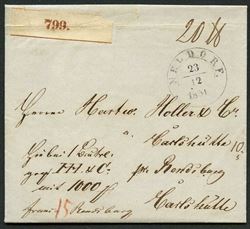 799.
20 ß
MELDORF.
23
12
1851
Herren Hartw. Holler & Co.
Carlshütte
Hiebei 1 Beutel
gez. HH & Co. pr. Rendsburg
mit 1000 Carlshütte
franco 15 Rendsburg